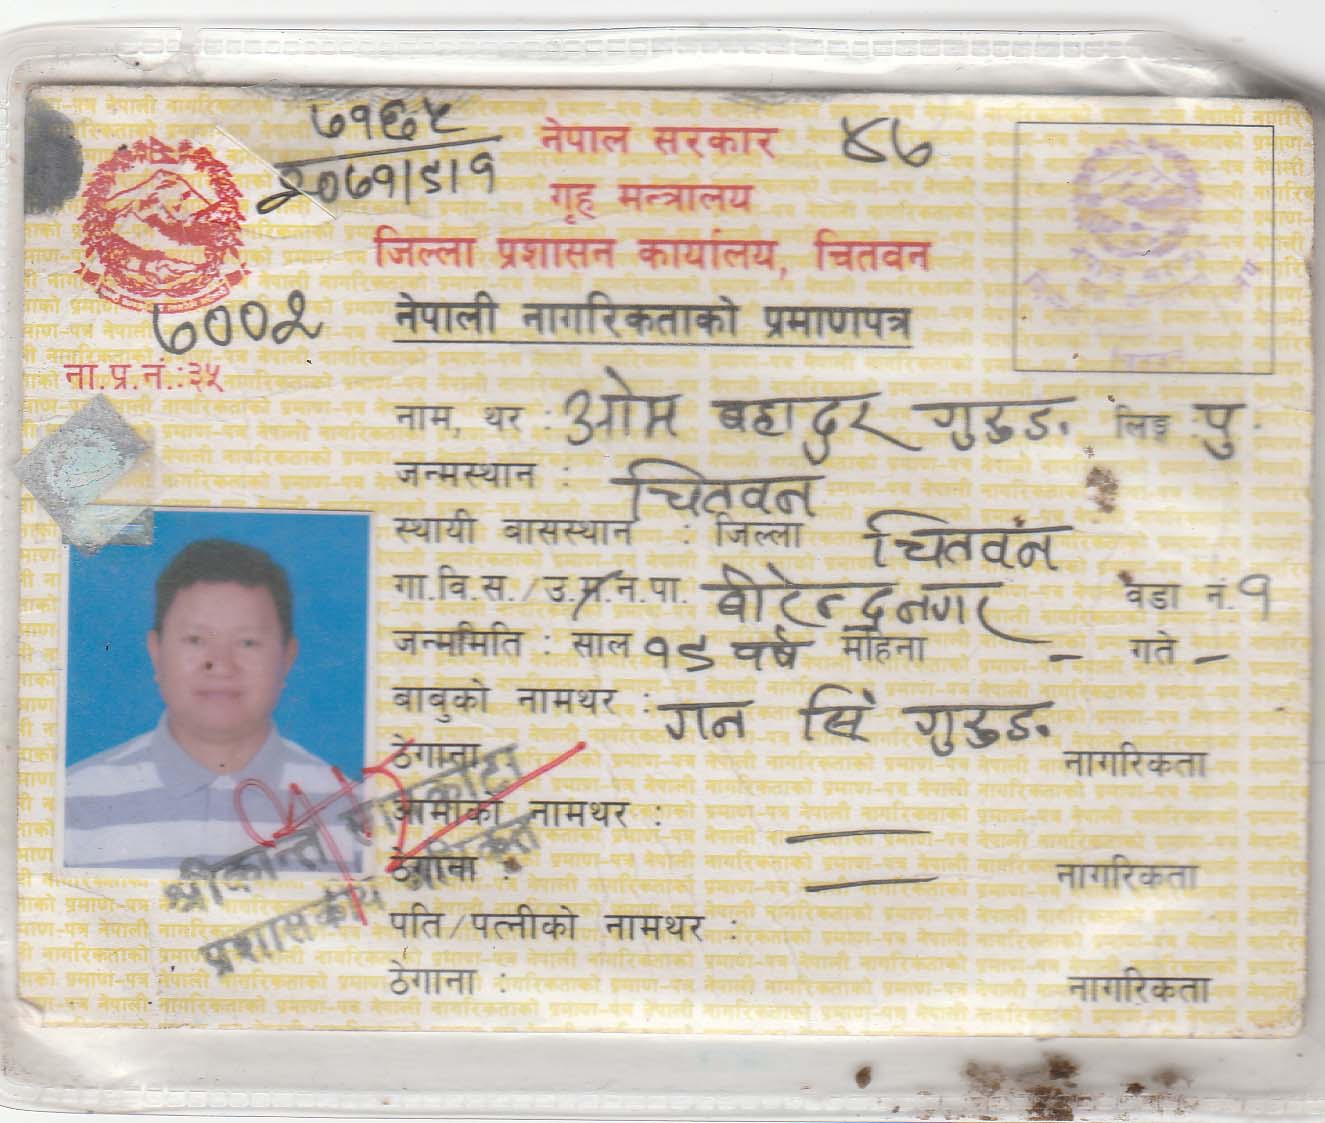 ७१६५
२०७१।९।१
नेपाल सरकार ४७
गृह मन्त्रालय
जिल्ला प्रशासन कार्यालय, चितवन
७००२
नेपाली नागरिकताको प्रमाणपत्र
ना.प्र.नं.:३५
नाम, थर : ओम बहादुर गुरुङ. लिङ्ग : पु.
जन्मस्थान : चितवन
स्थायी बासस्थान : जिल्ला चितवन
गा.वि.स./उ.म.न.पा. वीरेन्द्रनगर वडा नं. १
जन्ममिति : साल १९ वर्ष महिना - गते -
बाबुको नामथर : गन सिं गुरुङ.
ठेगाना नागरिकता
आमाको नामथर :
ठेगाना : नागरिकता
श्रीकान्त
प्रशासकीय अधिकृत
पति/पत्नीको नामथर :
ठेगाना : नागरिकता